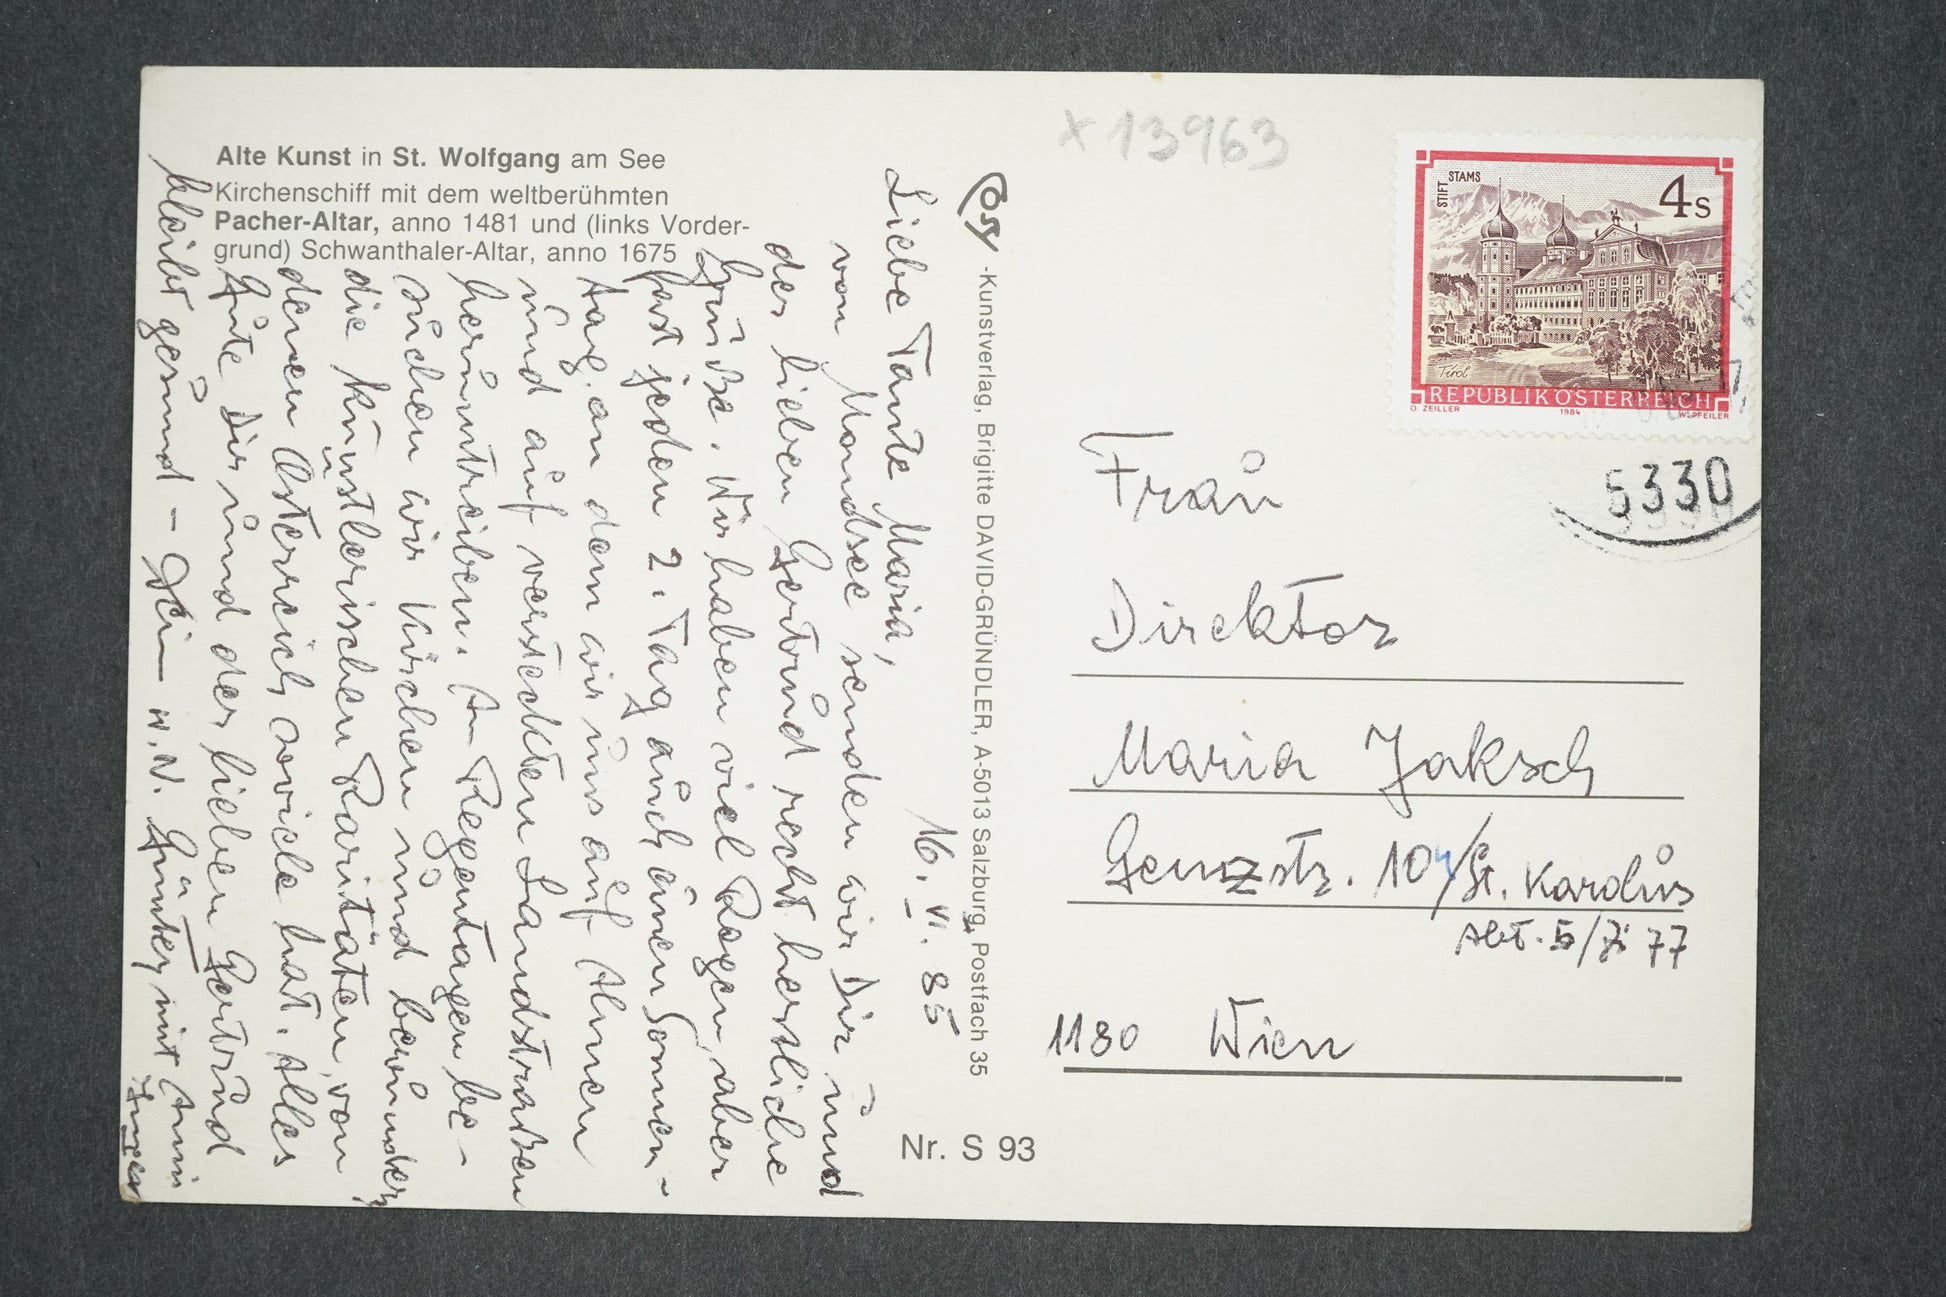 Alte Kunst in St. Wolfgang am See
Kirchenschiff mit dem weltberühmten
Pacher-Altar, anno 1481 und (links Vorder-
grund) Schwanthaler-Altar, anno 1675
16. VI. 85
Liebe Tante Maria,
von Mondsee senden wir Dir und
der lieben Gertrud recht herzliche
Grüße. Wir haben viel Regen, aber
fast jeden 2. Tag auch einen Sonnen-
tag, an dem wir uns auf Almen
und auf versteckten Landstraßen
herumtreiben. An Regentagen be-
suchen wir Kirchen und bewundern
die künstlerischen Raritäten, von
denen Österreich soviele hat. Alles
Gute Dir und der lieben Gertrud
bleibt gesund - Dein w. N. Günter, mit Anni
Cosy -Kunstverlag, Brigitte DAVID-GRÜNDLER, A-5013 Salzburg, Postfach 35
Nr. S 93
x 13963
STIFT STAMS
4s
Tirol
REPUBLIK ÖSTERREICH
O. ZEILLER 1984 W. PFEILER
5330
Frau
Direktor
Maria Jaksch
Genzstr. 104/St. Karolus
Abt. 5/Zi 77
1180 Wien